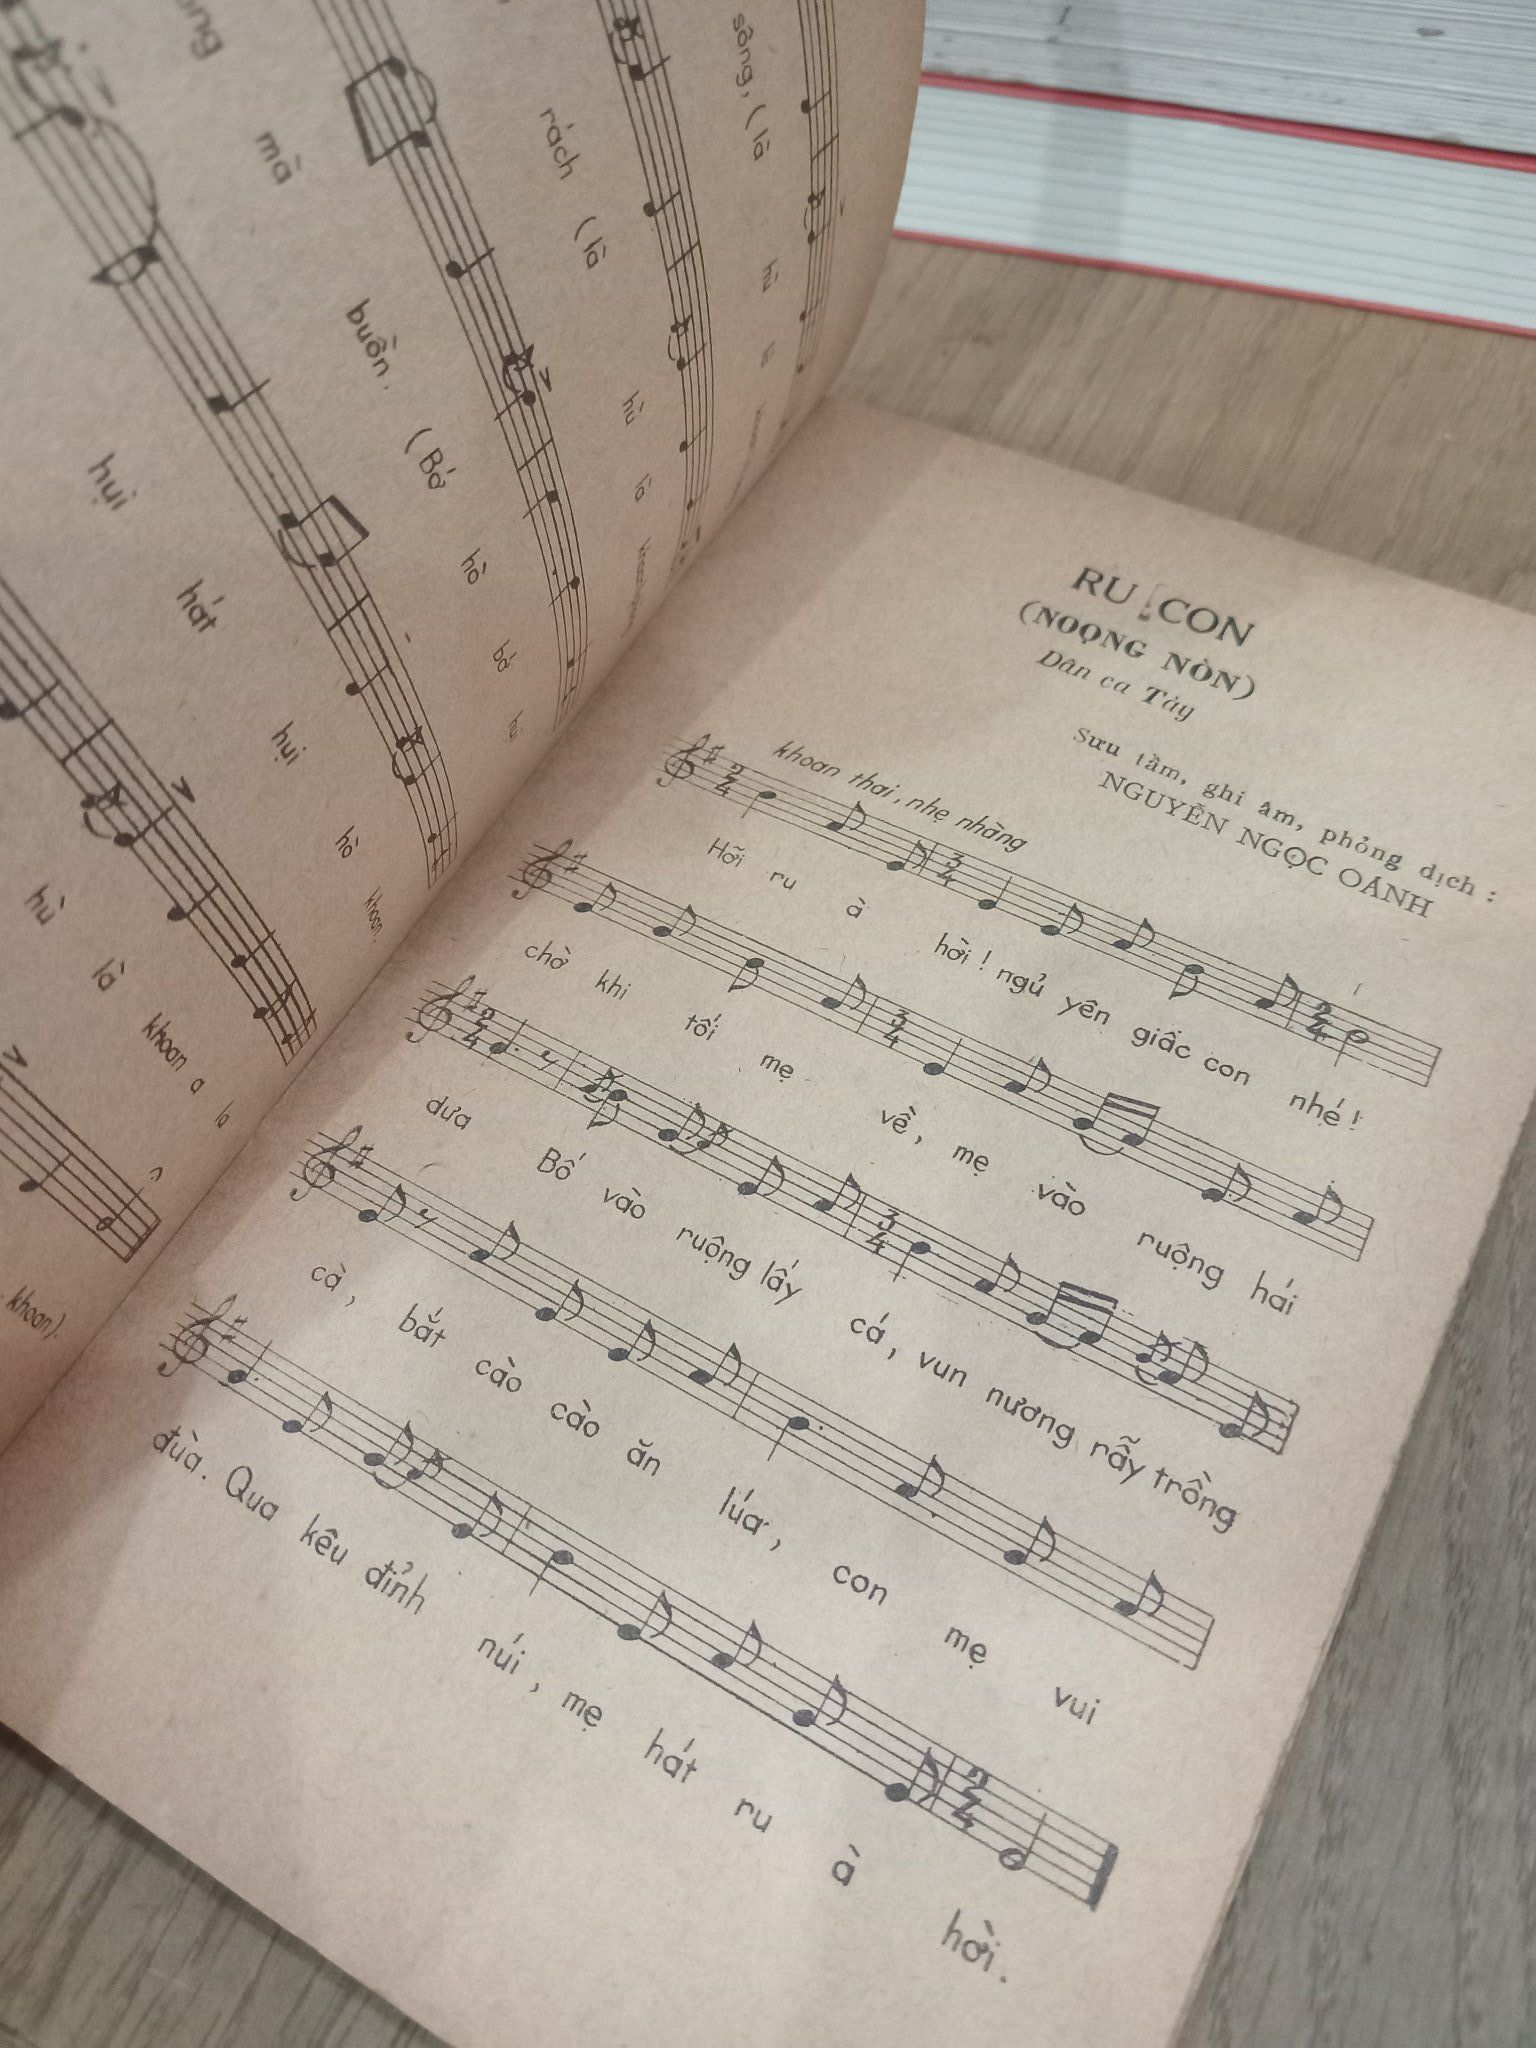 sông, (là
hù
là
rách (là
hù
là
mà
buồn. (Bớ
hò
bớ
hụi
hụi
hát
hụi
hò
khoan.
hù
là
khoan a la
khoan).
RU CON
(NOỌNG NÒN)
Dân ca Tày
Sưu tầm, ghi âm, phỏng dịch :
NGUYỄN NGỌC OÁNH
khoan thai, nhẹ nhàng
2/4 3/4 2/4
Hỡi ru à hời ! ngủ yên giấc con nhé !
3/4
chờ khi tối mẹ về, mẹ vào ruộng hái
2/4 3/4
dưa Bố vào ruộng lấy cá, vun nương rẫy trồng
cà, bắt cào cào ăn lúa, con mẹ vui
2/4
đùa. Qua kêu đỉnh núi, mẹ hát ru à hời.